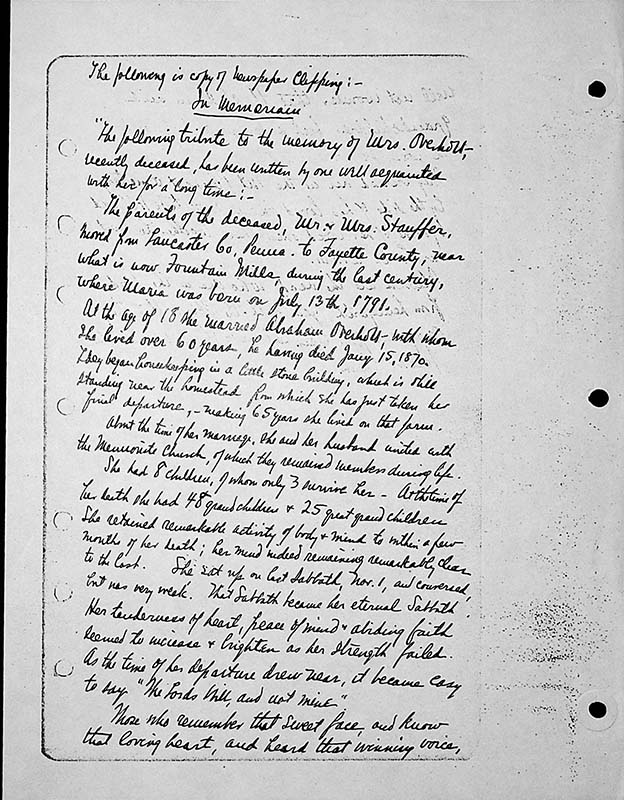 The following is copy of Newspaper Clipping:-
In Memoriam
"The following tribute to the memory of Mrs. Overholt,
recently deceased, has been written by one well acquainted
with her for a long time:-
The parents of the deceased, Mr. & Mrs. Stauffer,
moved from Lancaster Co, Penna. to Fayette County, near
what is now Fountain Mills, during the last century,
where Maria was born on July 13th, 1791.
At the age of 18 she married Abraham Overholt - with whom
she lived over 60 years, he having died Jany 15, 1870.
They began housekeeping in a little stone building, which is still
standing near the homestead from which she has just taken her
final departure, - making 65 years she lived on that farm.
About the time of her marriage, she and her husband united with
the Mennonite Church, of which they remained members during life.
She had 8 children, of whom only 3 survive her - At the time of
her death she had 48 grandchildren & 25 great grandchildren
She retained remarkable activity of body & mind to within a few
months of her death; her mind indeed remaining remarkably clear
to the last. She sat up on last Sabbath, Nov. 1, and conversed,
but was very weak. That Sabbath became her eternal Sabbath.
Her tenderness of heart, peace of mind & abiding faith
seemed to increase & brighten as her strength failed.
As the time of her departure drew near, it became easy
to say "The Lords Will, and not mine"
Those who remember that sweet face, and know
that loving heart, and heard that winning voice,